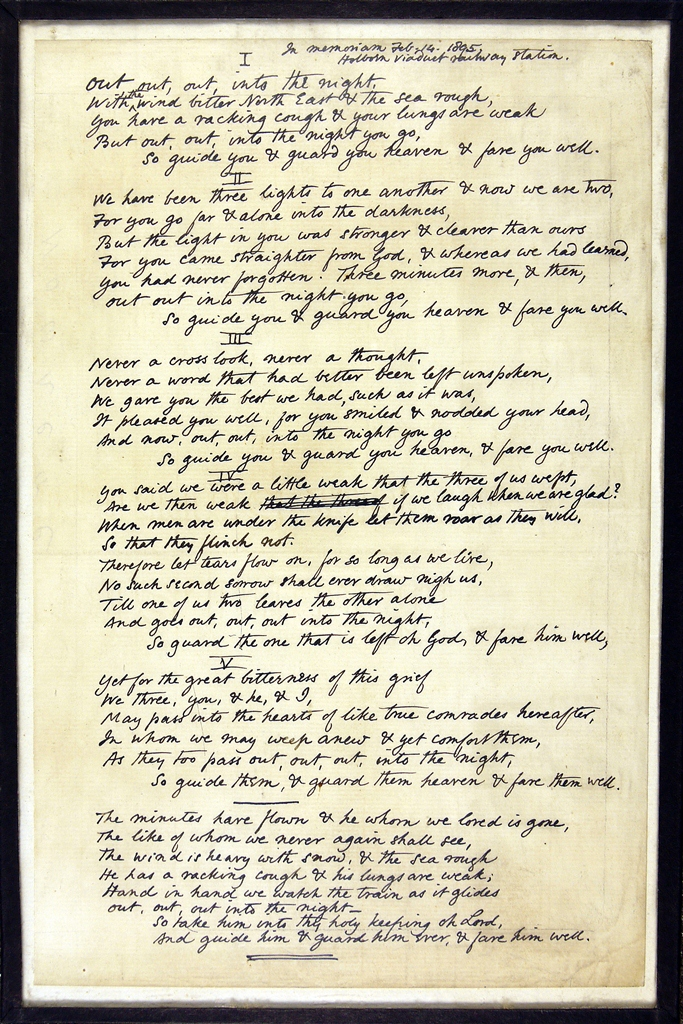 In memoriam Feb. 14. 1895,
I
Holborn Viaduct railway station.
Out out, out, into the night,
With the wind bitter North East & the sea rough,
You have a racking cough & your lungs are weak
But out, out, into the night you go,
So guide you & guard you heaven & fare you well.
II
We have been three lights to one another & now we are two,
For you go far & alone into the darkness,
But the light in you was stronger & clearer than ours
For you came straighter from God, & whereas we had learned,
You had never forgotten. Three minutes more, & then,
out out into the night you go,
So guide you & guard you heaven & fare you well.
III
Never a cross look, never a thought,
Never a word that had better been left unspoken,
We gave you the best we had, such as it was,
It pleased you well, for you smiled & nodded your head,
And now, out, out, into the night you go
So guide you & guard you heaven, & fare you well.
IV
You said we were a little weak that the three of us wept,
Are we then weak that the three of if we laugh when we are glad?
When men are under the knife let them roar as they will,
So that they flinch not.
Therefore let tears flow on, for so long as we live,
No such second sorrow shall ever draw nigh us,
Till one of us two leaves the other alone
And goes out, out, out into the night,
So guard the one that is left oh God, & fare him well,
V
Yet for the great bitterness of this grief
We three, you, & he, & I,
May pass into the hearts of like true comrades hereafter,
In whom we may weep anew & yet comfort them,
As they too pass out, out, out, into the night,
So guide them, & guard them heaven & fare them well.
The minutes have flown & he whom we loved is gone,
The like of whom we never again shall see,
The wind is heavy with snow, & the sea rough
He has a racking cough & his lungs are weak;
Hand in hand we watch the train as it glides
out, out, out into the night—
So take him into thy holy keeping oh Lord,
And guide him & guard him ever, & fare him well.